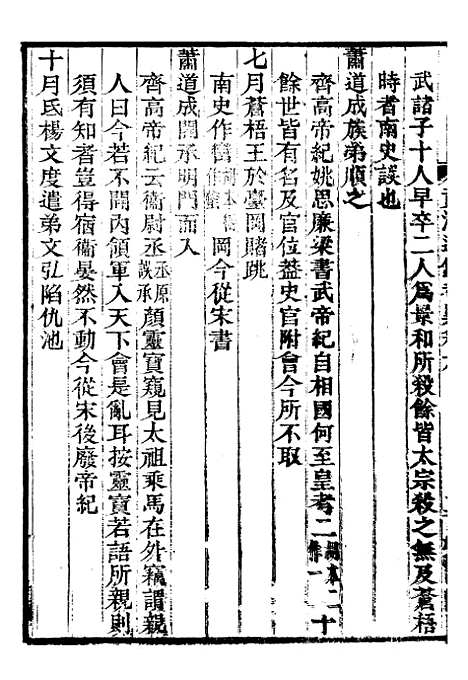 武諸子十人早卒二人爲景和所殺餘皆太宗殺之無及蒼梧
時者南史誤也
蕭道成族弟順之
齊高帝紀姚思廉梁書武帝紀自相國何至皇考二十
餘世皆有名及官位蓋史官附會今所不取
七月蒼梧王於臺岡賭跳
南史作蠻岡今從宋書
蕭道成開承明門而入
齊高帝紀云衞尉丞丞原誤承顏靈寶窺見太祖乘馬在外竊謂親
人曰今若不開內領軍入天下會是亂耳按靈寶若語所親則
須有知者豈得宿衞晏然不動今從宋後廢帝紀
十月氐楊文度遣弟文弘陷仇池